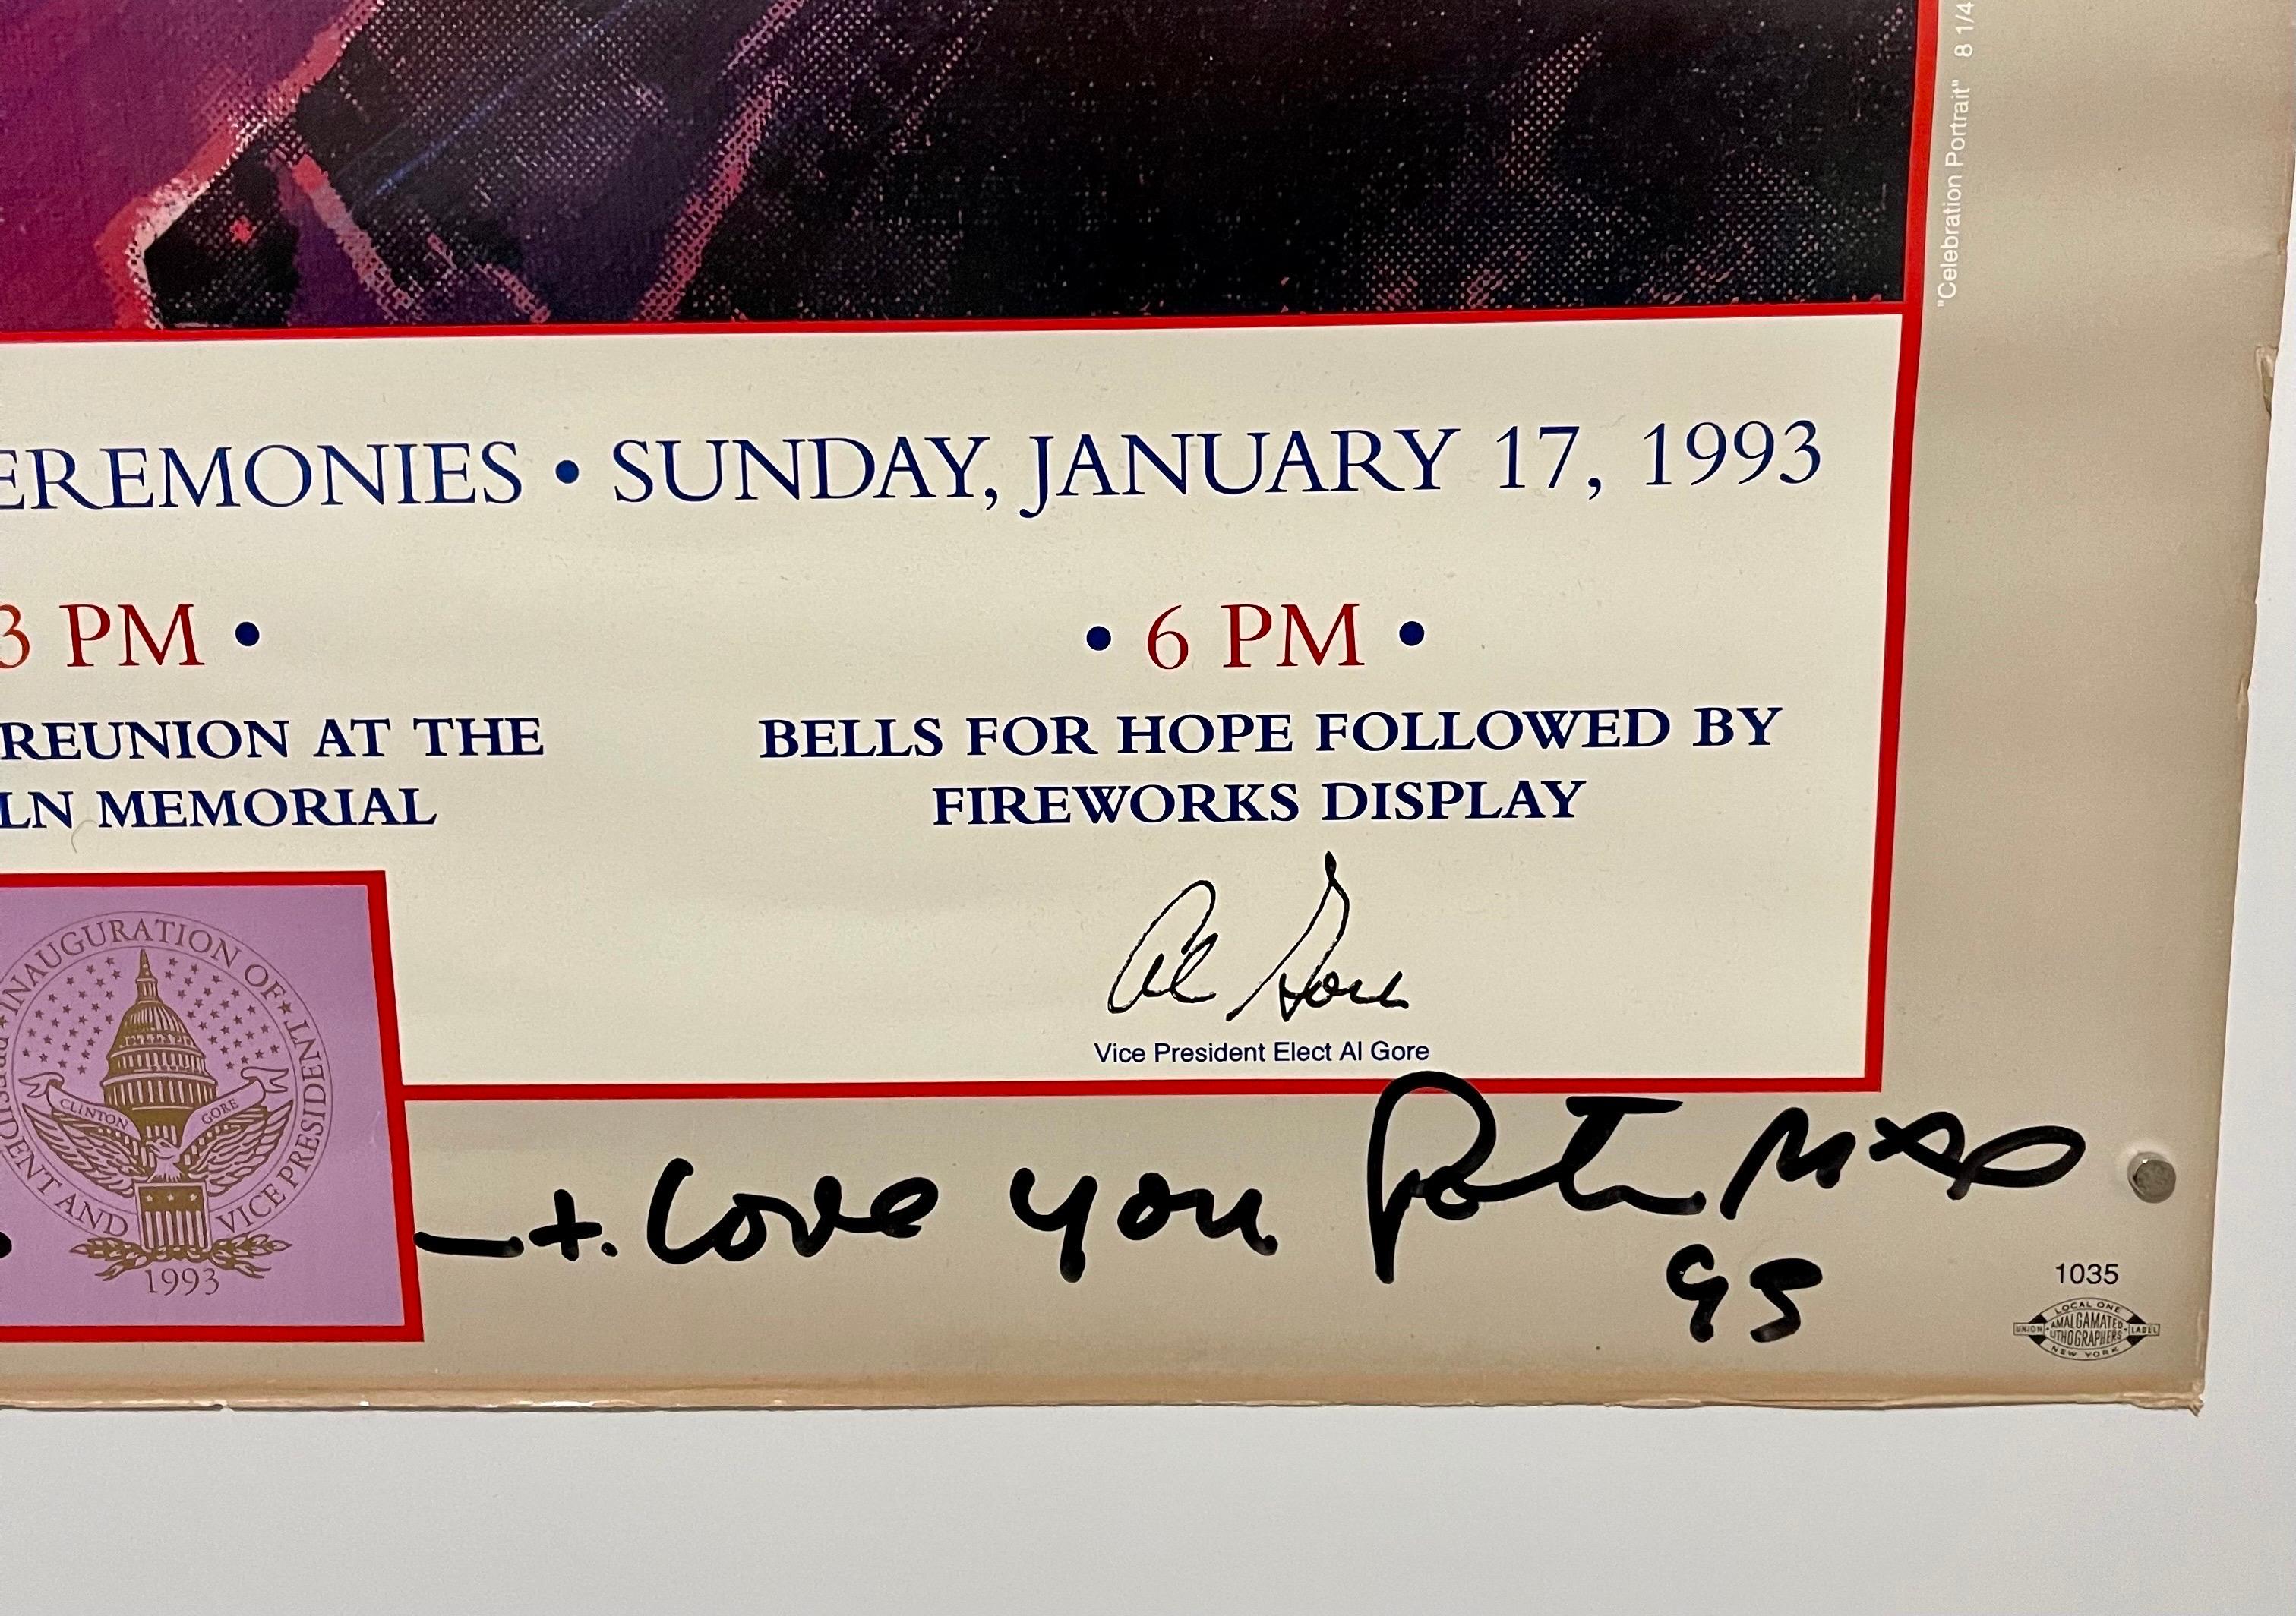 "Celebration Portrait" 8 1/4
EREMONIES • SUNDAY, JANUARY 17, 1993
3 PM •
REUNION AT THE
LN MEMORIAL
• 6 PM •
BELLS FOR HOPE FOLLOWED BY
FIREWORKS DISPLAY
Al Gore
Vice President Elect Al Gore
INAUGURATION OF PRESIDENT AND VICE PRESIDENT
CLINTON GORE
1993
+. Love you Peter Max
95
1035
LOCAL ONE
UNION AMALGAMATED LABEL
LITHOGRAPHERS
NEW YORK